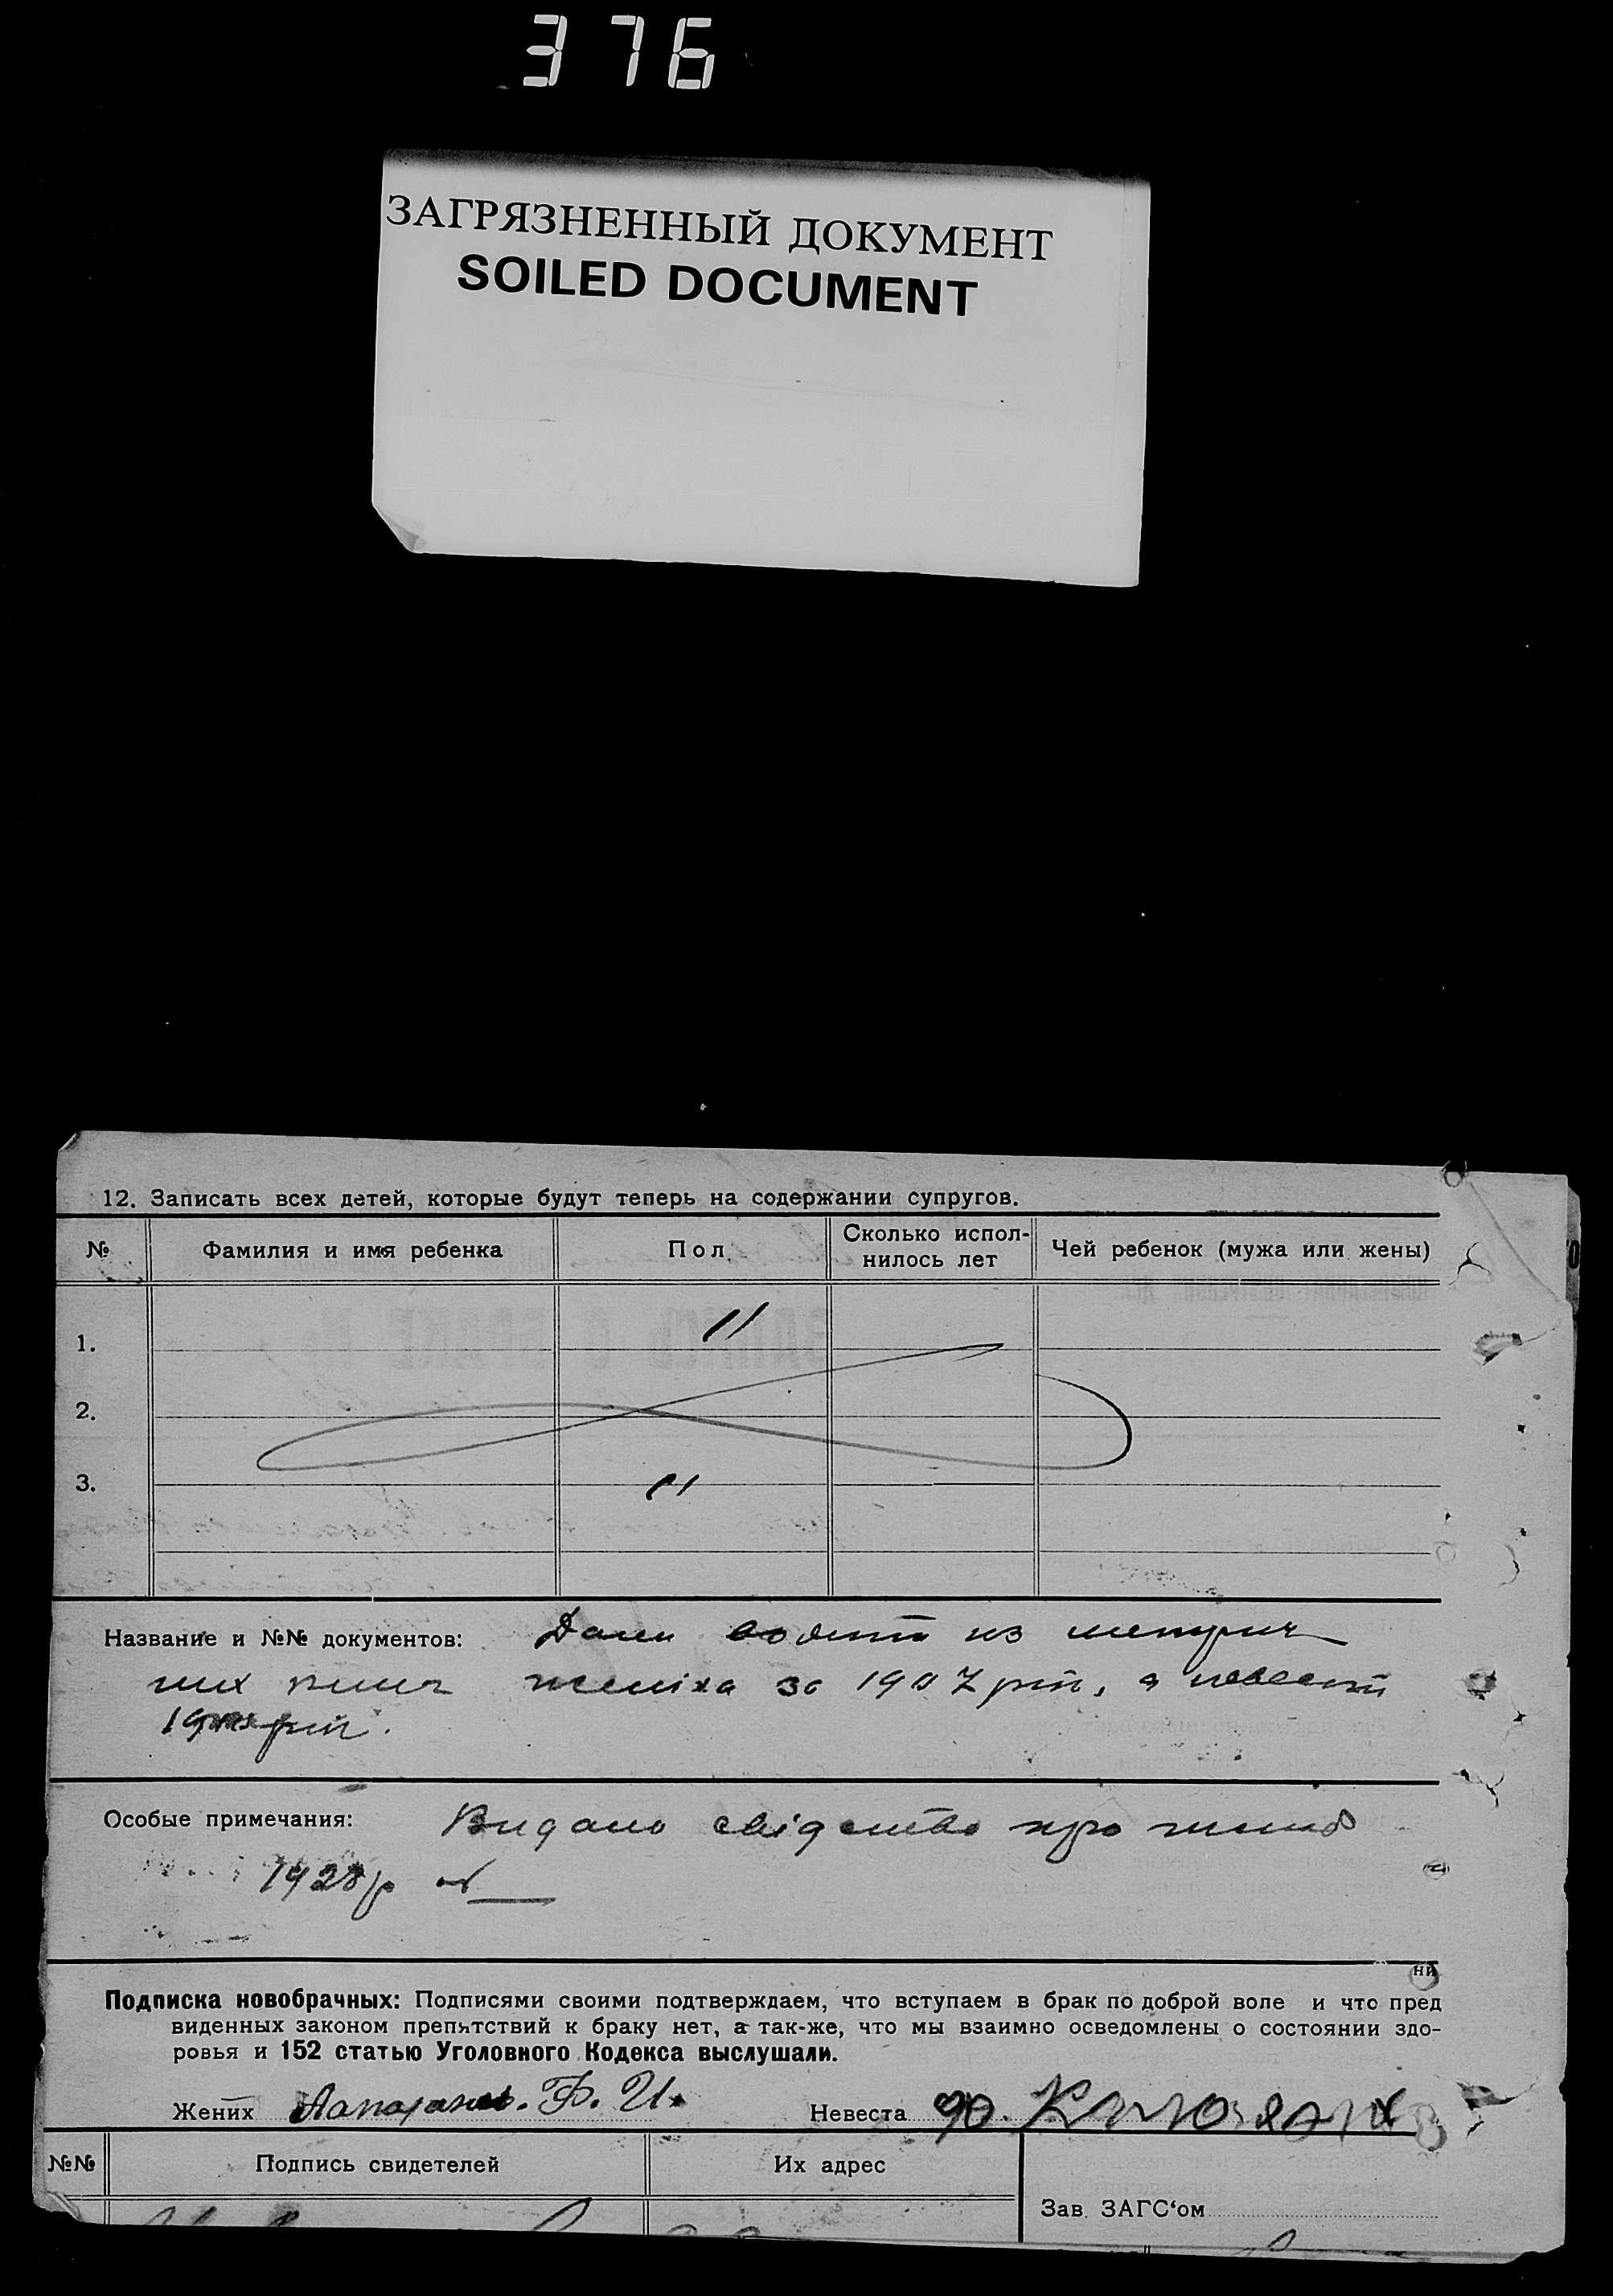 376
ЗАГРЯЗНЕННЫЙ ДОКУМЕНТ
SOILED DOCUMENT
12. Записать всех детей, которые будут теперь на содержании супругов.
№ Фамилия и имя ребенка Пол Сколько испол-нилось лет Чей ребенок (мужа или жены)
1.
2.
3.
Название и №№ документов: из
них за 1907 рік, а
Особые примечания: Видано свідоцтво про шлюб
1928 р
ни
Подписка новобрачных: Подписями своими подтверждаем, что вступаем в брак по доброй воле и что пред
виденных законом препятствий к браку нет, а так-же, что мы взаимно осведомлены о состоянии здо-
ровья и 152 статью Уголовного Кодекса выслушали.
Жених Ф. И. Невеста
№№ Подпись свидетелей Их адрес
Зав. ЗАГС'ом